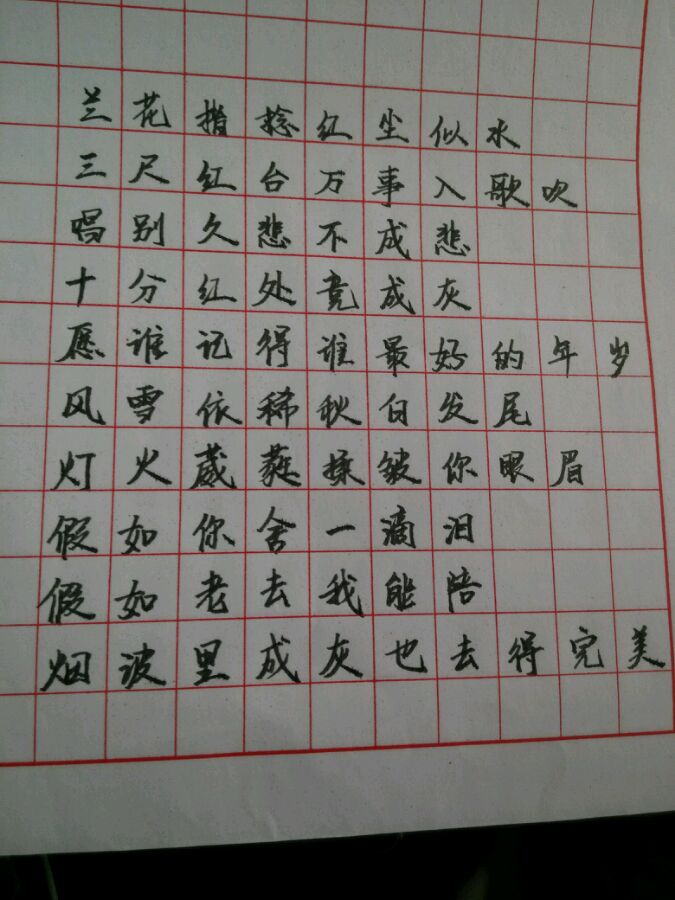 兰花指捻红尘似水
三尺红台万事入歌吹
唱别久悲不成悲
十分红处竟成灰
愿谁记得谁最好的年岁
风雪依稀秋白发尾
灯火葳蕤揉皱你眼眉
假如你舍一滴泪
假如老去我能陪
烟波里成灰也去得完美